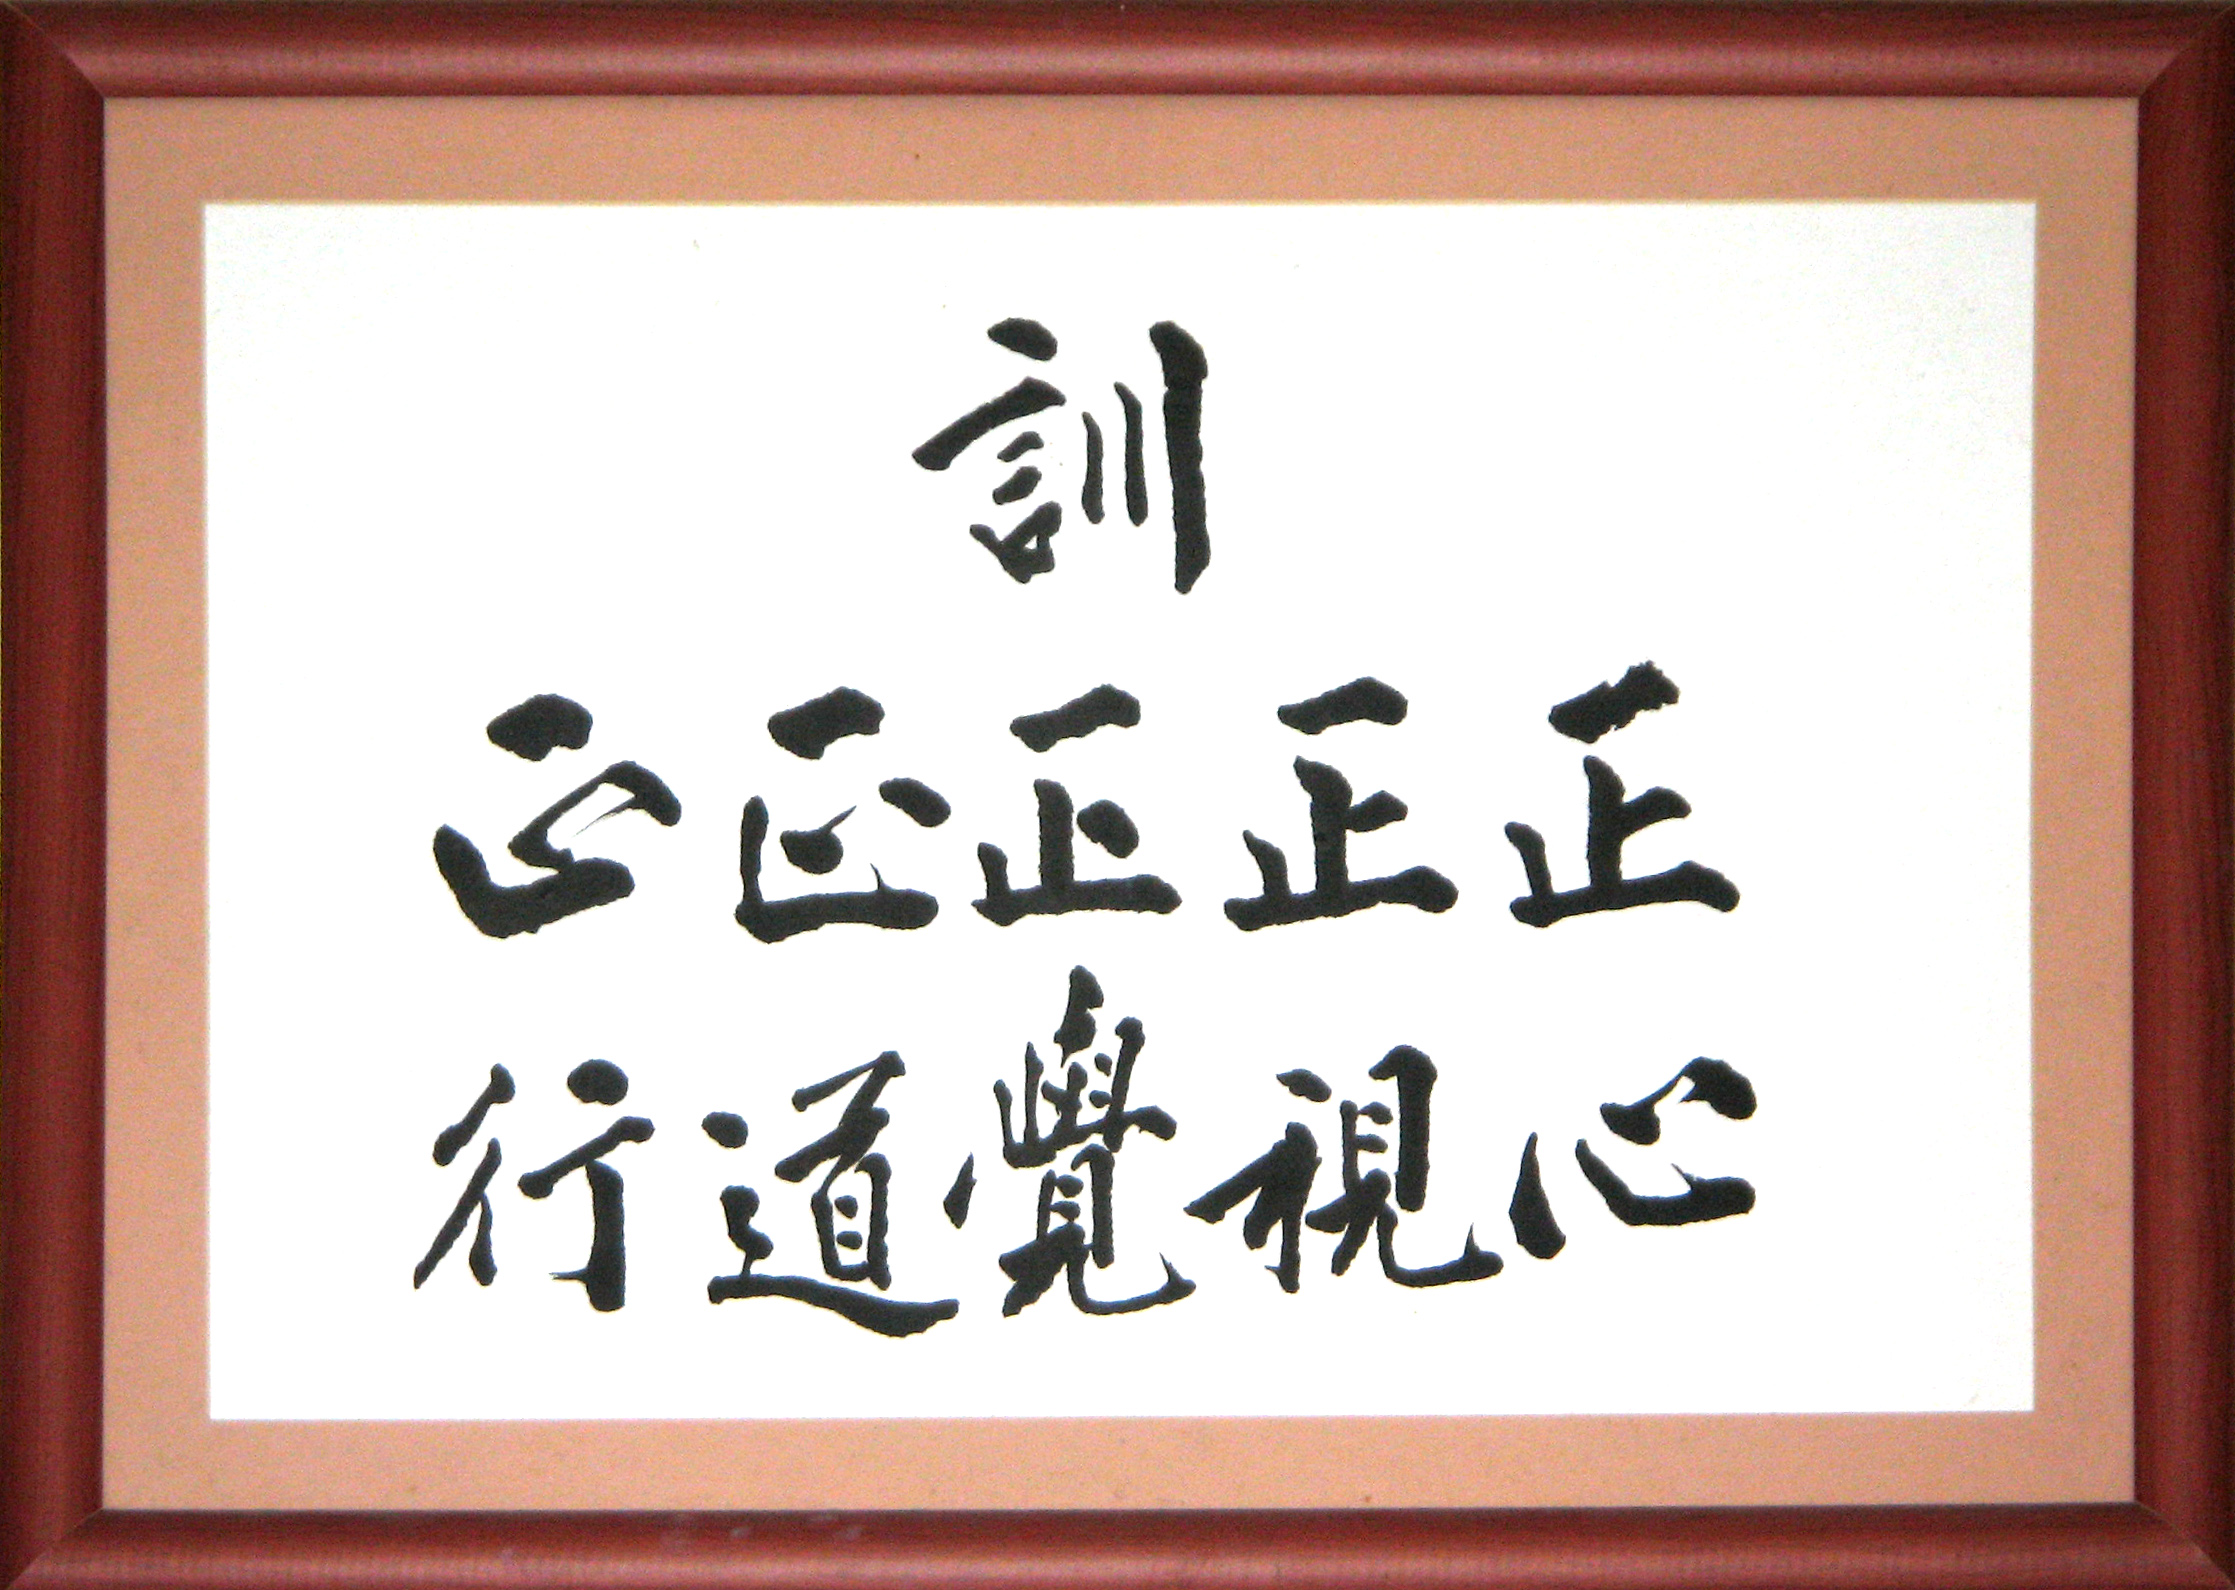 訓
正心
正視
正覺
正道
正行